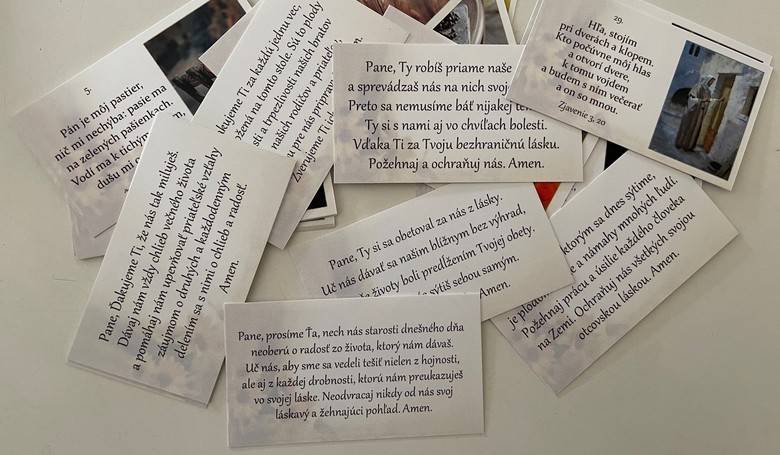 5.
Pán je môj pastier,
nič mi nechýba: pasie ma
na zelených pašienkach.
Vodí ma k tichým
dušu mi
kujeme Ti za každú jednu vec,
žená na tomto stole. Sú to plody
sti a trpezlivosti našich bratov
našich rodičov a priateľo
u pre nás priprav
Zverujeme Ti ich
Pane, Ty robíš priame naše
a sprevádzaš nás na nich svoj
Preto sa nemusíme báť nijakej
Ty si s nami aj vo chvíľach bolesti.
Vďaka Ti za Tvoju bezhraničnú lásku.
Požehnaj a ochraňuj nás. Amen.
29.
Hľa, stojím
pri dverách a klopem.
Kto počúvne môj hlas
a otvorí dvere,
k tomu vojdem
a budem s ním večerať
a on so mnou.
Zjavenie 3, 20
Pane, Ďakujeme Ti, že nás tak miluješ.
Dávaj nám vždy chlieb večného života
a pomáhaj nám upevňovať priateľské vzťahy
záujmom o druhých a každodenným
delením sa s nimi o chlieb a radosť.
Amen.
Pane, Ty si sa obetoval za nás z lásky.
Uč nás dávať sa našim blížnym bez výhrad,
životy boli predĺžením Tvojej obety.
sýtiš sebou samým.
Amen.
ktorým sa dnes sýtime,
je plodo a námahy mnohých ľudí.
Požehnaj prácu a úsilie každého človeka
na Zemi. Ochraňuj nás všetkých svojou
otcovskou láskou. Amen.
Pane, prosíme Ťa, nech nás starosti dnešného dňa
neoberú o radosť zo života, ktorý nám dávaš.
Uč nás, aby sme sa vedeli tešiť nielen z hojnosti,
ale aj z každej drobnosti, ktorú nám preukazuješ
vo svojej láske. Neodvracaj nikdy od nás svoj
láskavý a žehnajúci pohľad. Amen.